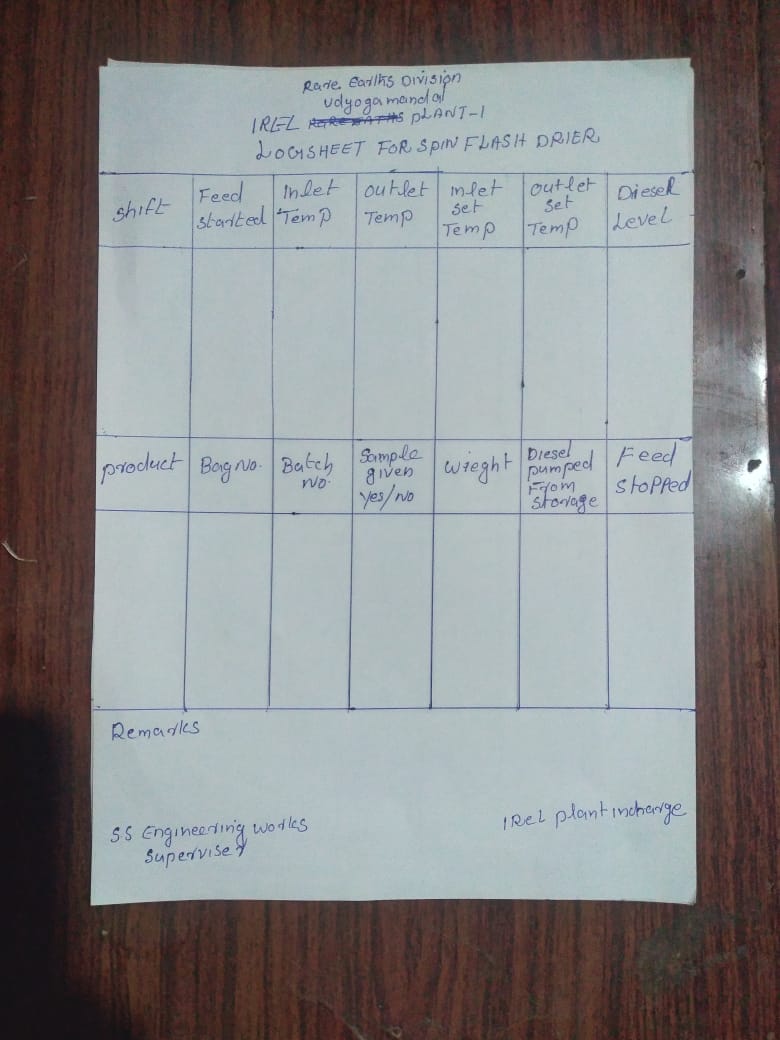 Rare Earths Division
Udyogamandal
IREL PLANT-1
LOGSHEET FOR SPIN FLASH DRIER
Shift
Feed
Started
Inlet
Temp
Outlet
Temp
Inlet
Set
Temp
Outlet
Set
Temp
Diesel
Level
product
Bag No.
Batch
No.
Sample
given
Yes/No
Wieght
Diesel
pumped
From
Storage
Feed
Stopped
Remarks
S.S Engineering Works
Superviser
IREL plant incharge